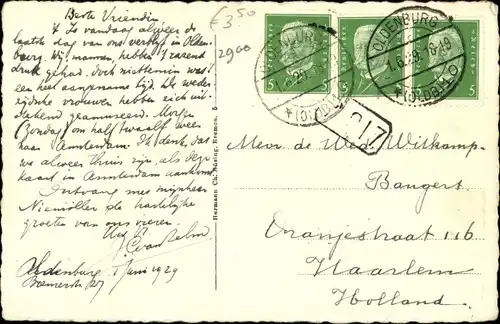 Beste Vriendin
't Is vandaag alweer de
laatste dag van ons verblijf in Olden-
burg. Wij mannen hebben 't razend
druk gehad. Doch niettemin was 't
een heel aangename tijd. De weder-
zijdsche vrouwen hebben zich uit-
stekend geamuseerd. Morgen
Zondag om half twaalf weer
naar Amsterdam. Ik denk, dat
we alweer thuis zijn, als deze
kaart in Amsterdam aankomt.
Ontvang met mijnheer
Niemöller de hartelijke
groeten van ons vieren.
Oldenburg 1 Juni 1929
27
€ 3,50
2900
Hermann Ch. Büsing, Bremen. 5
5 5 5
OLDENBURG
* (OLDB) *
OLDENBURG
1.6.29
* (OLDB) 1 O
217
Mevr. de Wed. Witkamp-
Bangert
Oranjestraat 116
Haarlem
Holland.